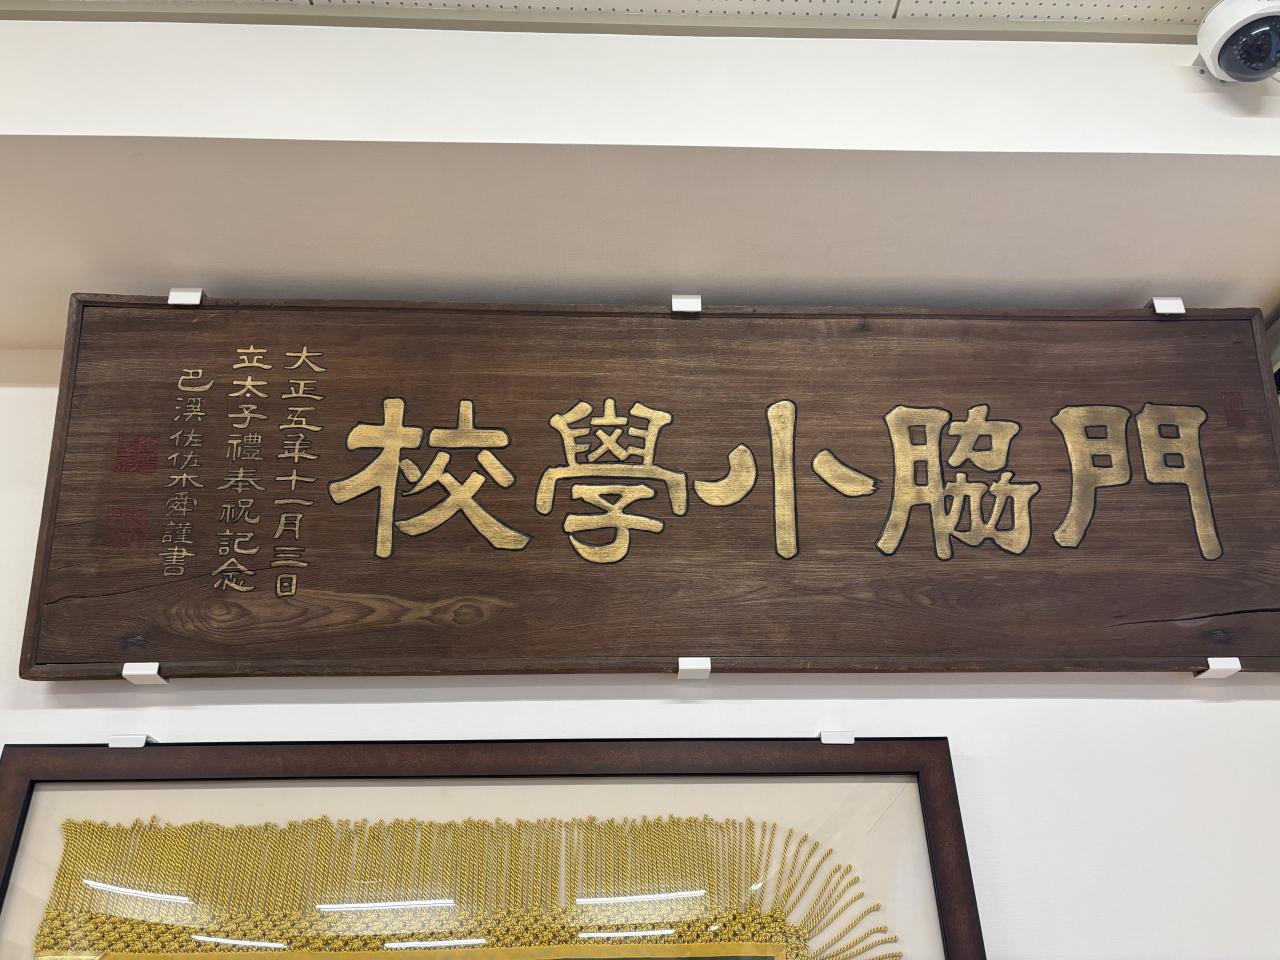 門脇小學校
大正五年十一月三日
立太子禮奉祝記念
巴溪佐佐木舜謹書